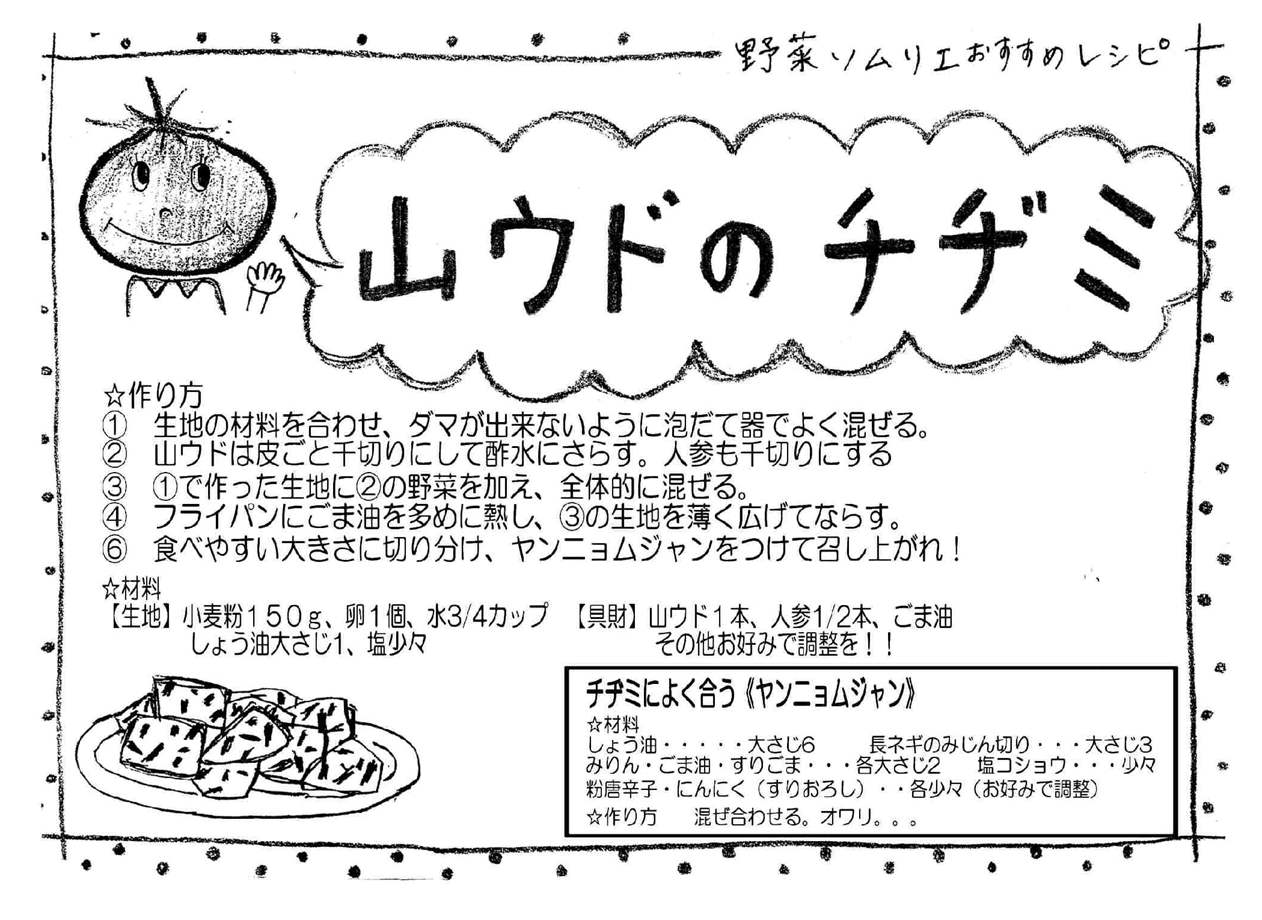 野菜ソムリエおすすめレシピ
山ウドのチヂミ
☆作り方
①　生地の材料を合わせ、ダマが出来ないように泡だて器でよく混ぜる。
②　山ウドは皮ごと千切りにして酢水にさらす。人参も千切りにする
③　①で作った生地に②の野菜を加え、全体的に混ぜる。
④　フライパンにごま油を多めに熱し、③の生地を薄く広げてならす。
⑥　食べやすい大きさに切り分け、ヤンニョムジャンをつけて召し上がれ！
☆材料
【生地】小麦粉１５０ｇ、卵１個、水3/4カップ　【具財】山ウド１本、人参1/2本、ごま油
しょう油大さじ1、塩少々　その他お好みで調整を！！
チヂミによく合う《ヤンニョムジャン》
☆材料
しょう油・・・・・大さじ6　　長ネギのみじん切り・・・大さじ3
みりん・ごま油・すりごま・・・各大さじ2　　塩コショウ・・・少々
粉唐辛子・にんにく（すりおろし）・・各少々（お好みで調整）
☆作り方　　混ぜ合わせる。オワリ。。。